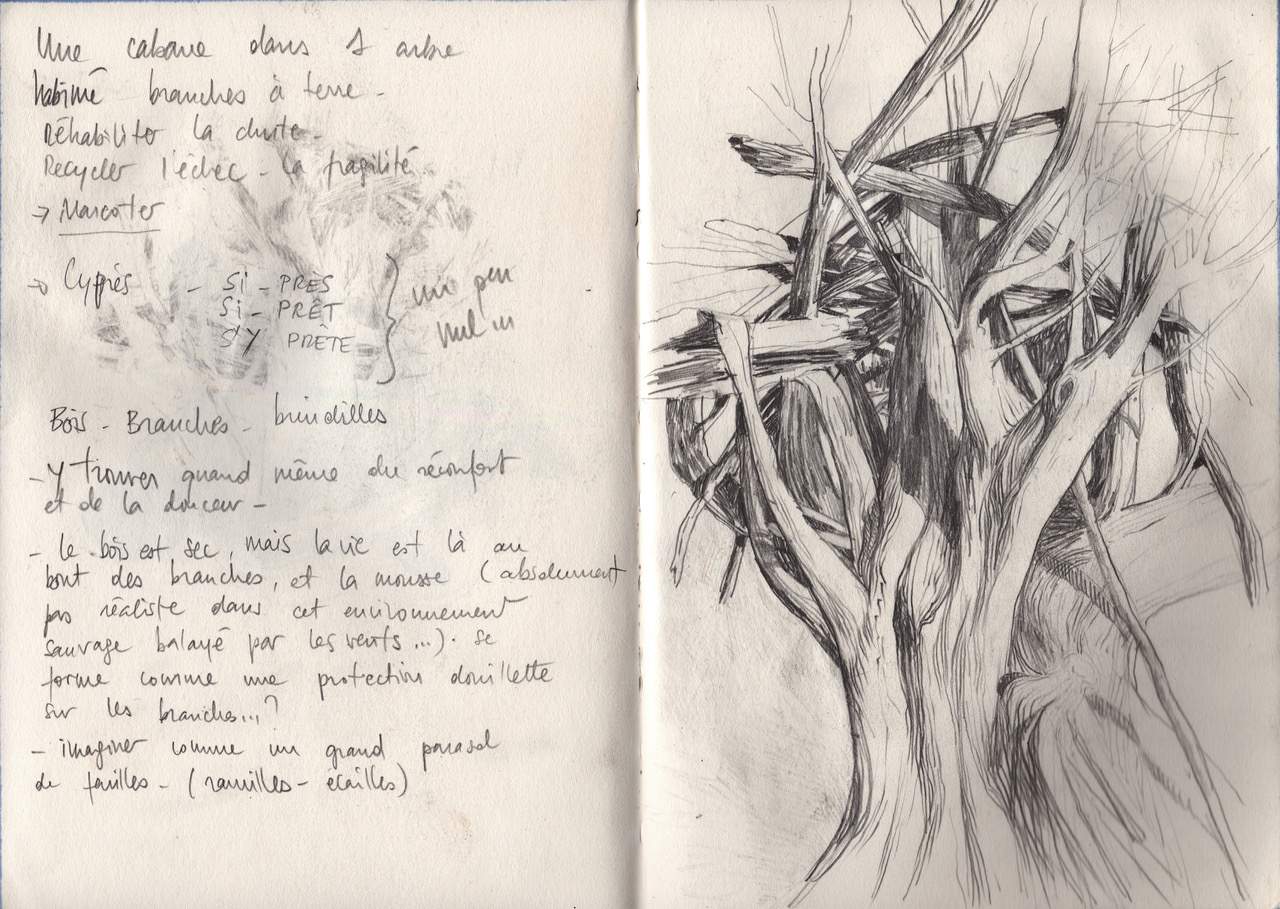 Une cabane dans 1 arbre
habimé branches à terre -
Réhabiliter la chute -
Recycler l'échec - la fragilité
→ Marcotter
→ Cyprès - SI - PRÈS
Si - PRÊT
S'Y PRÊTE
} un peu
nul !!!
Bois - Branches - brindilles
- Y trouver quand même du réconfort
et de la douceur -
- le bois est sec, mais la vie est là au
bout des branches, et la mousse (absolument
pas réaliste dans cet environnement
sauvage balayé par les vents...). se
forme comme une protection douillette
sur les branches...?
- imaginer comme un grand parasol
de feuilles - (ramilles - écailles)